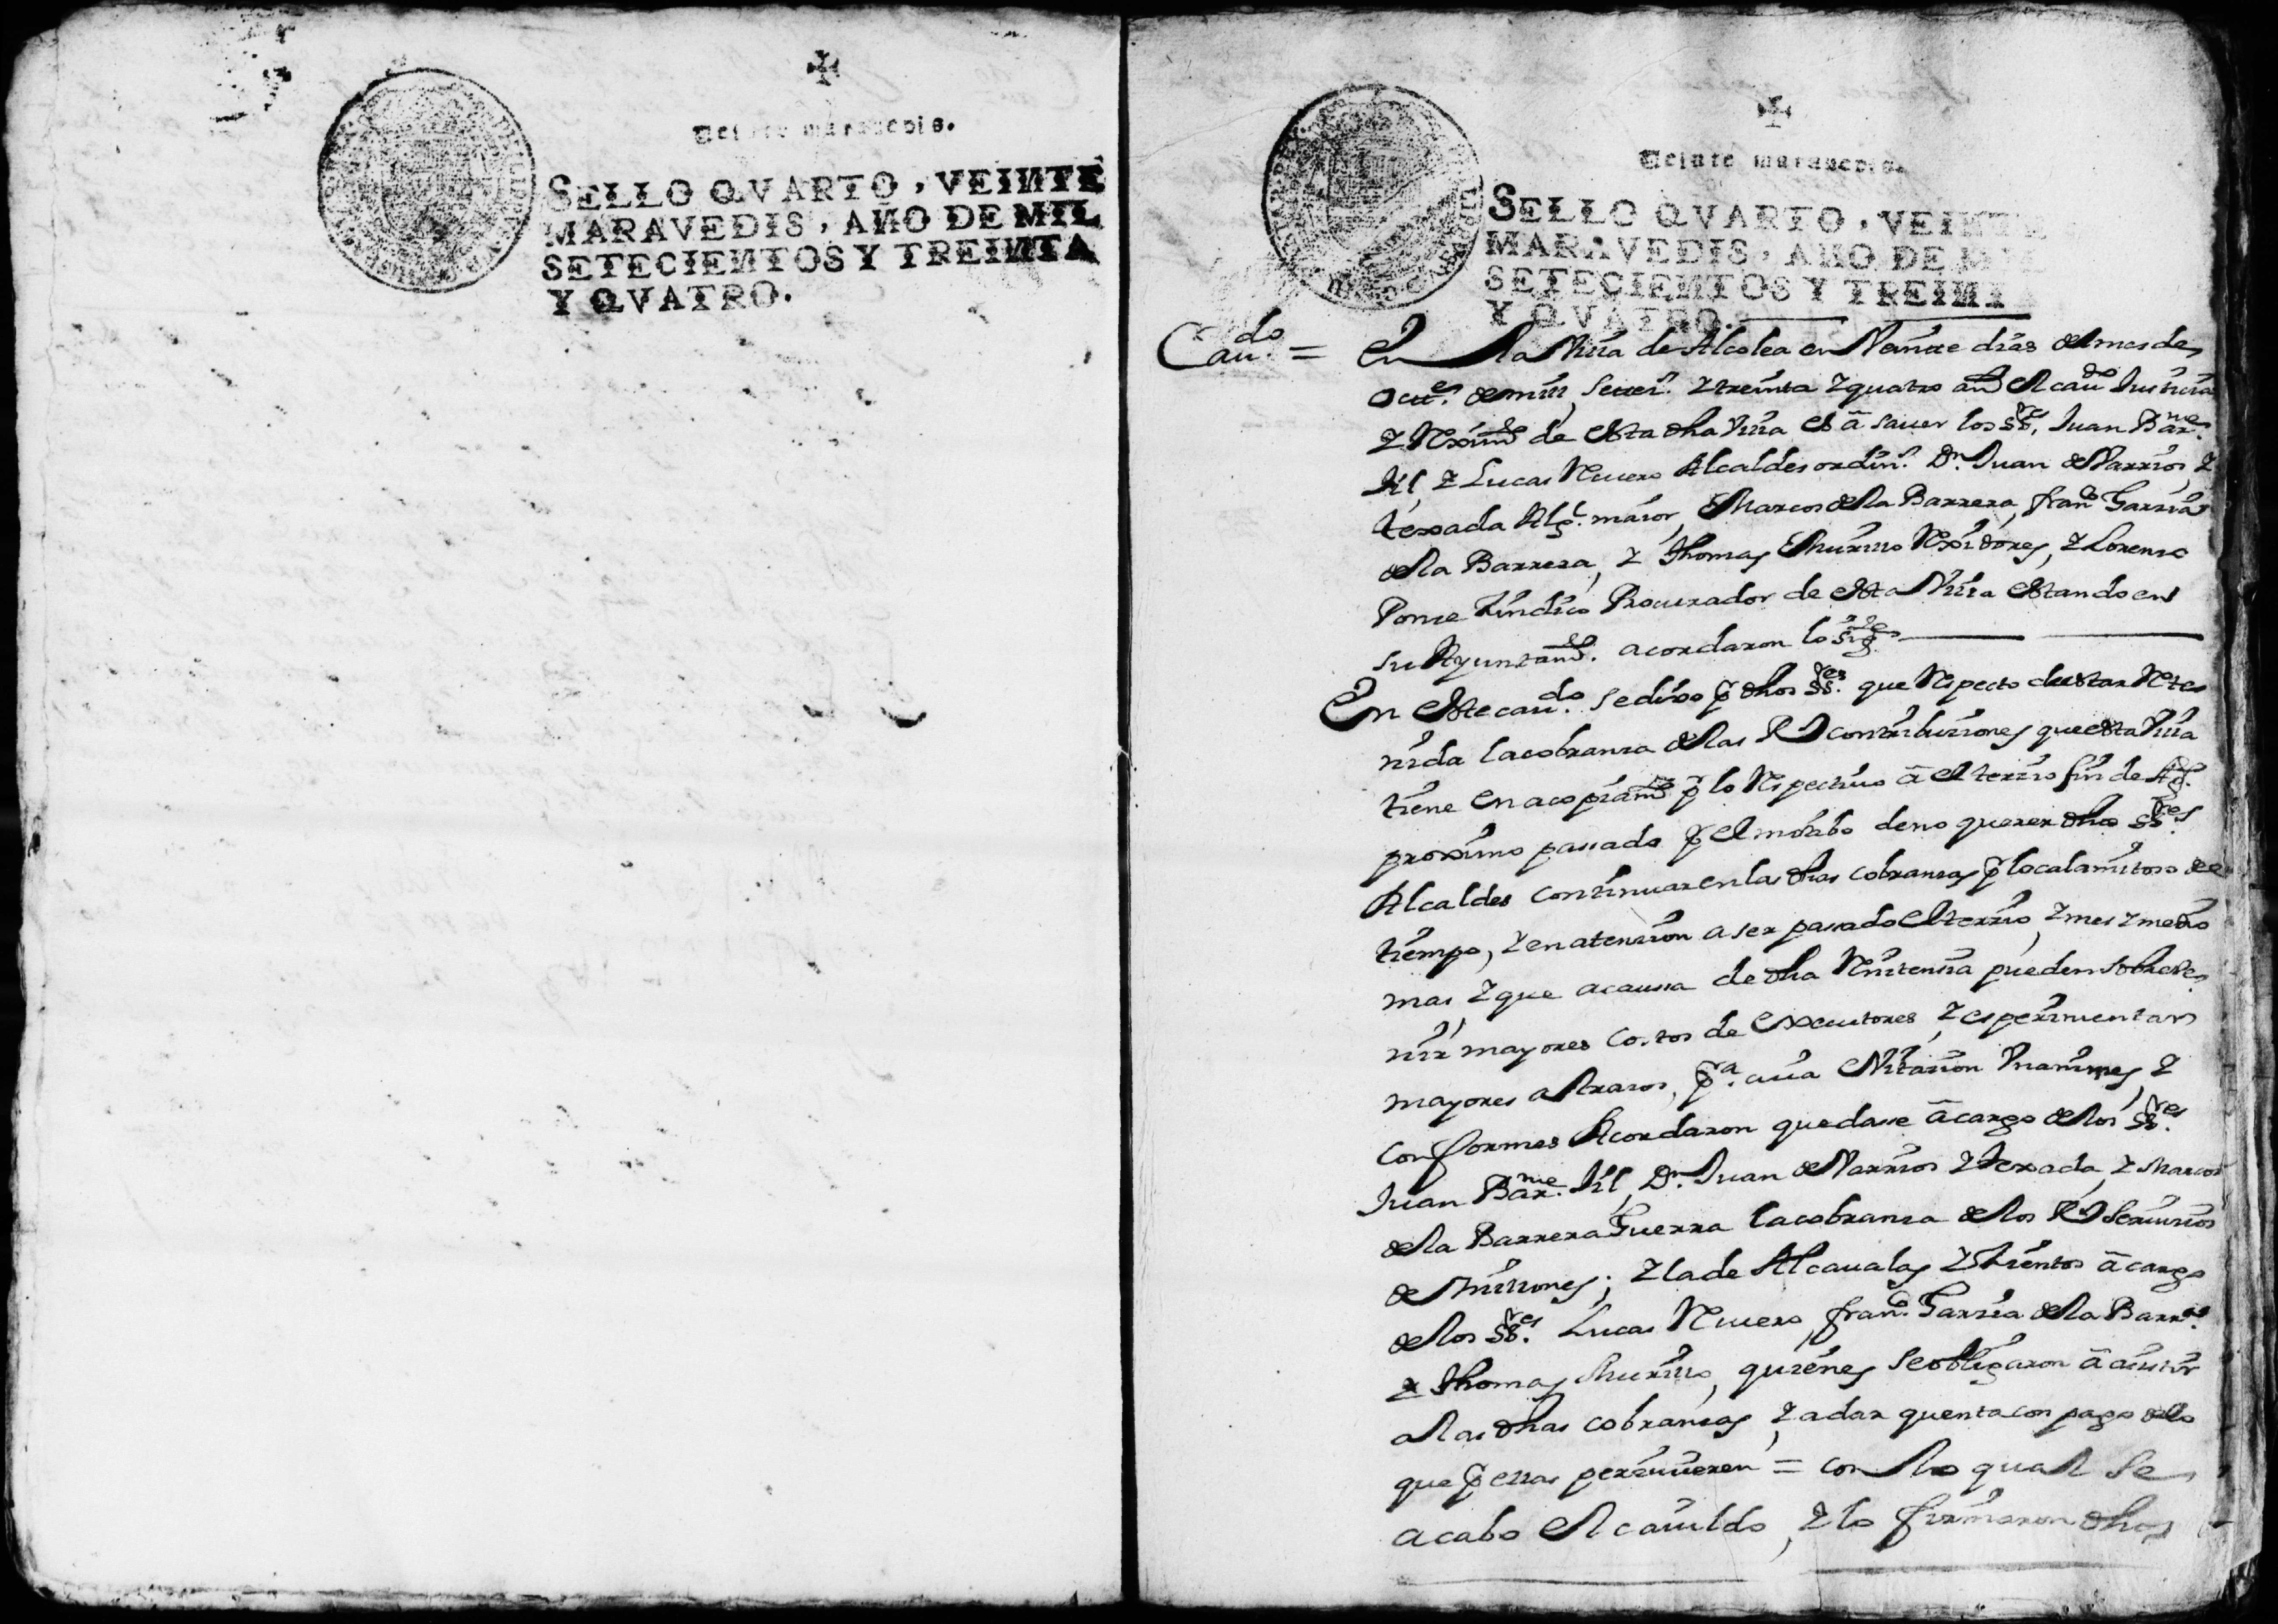 Veinte maravedis.
SELLO QVARTO, VEINTE
MARAVEDIS, AÑO DE MIL
SETECIENTOS Y TREINTA
Y QVATRO.
Veinte maravedis.
SELLO QVARTO, VEINTE
MARAVEDIS, AÑO DE MIL
SETECIENTOS Y TREINTA
Y QVATRO.
Cau.do = En la Villa de Alcolea en Veinte dias del mes de
octt.e de mill, setez.s y treinta y quatro añ.s el cau.do Justicia
y Reximt.o de esta dha Villa es â saver los ss.res Juan Bar.me
Xil, y Lucas Rivero Alcaldes ordin.s D.n Juan de Varrios, y
texada Alg.l maior, Marcos de la Barrera, fran.co Garzia
de la Barrera, y Thomas Murillo Rexidores, y Lorenzo
Ponze Sindico Procurador de esta Villa estando en
su Ayuntam.to acordaron lo sig.te
En este cau.do se dixo p.r dhos ss.res que Respecto de estar Rete
nida la cobranza de las R.s contribuziones que esta Villa
tiene en acopiam.to p.r lo Respectivo â el terzio fin de Ag.to
proximo passado p.r el motibo de no querer dhos ss.res
Alcaldes continuar en las dhas cobranzas p.r lo calamitoso de el
tiempo, y en atenzion a ser pasado el terzio, y mes y medio
mas, y que a causa de dha Renitenzia pueden sobreve
nir mayores costos de executores, y esperimentar
mayores atrasos, p.a cuia evitazion Vnanimes, y
conformes Acordaron quedase â cargo de los ss.res
Juan Bar.me Xil, D.n Juan de Varrios y texada, y Marcos
de la Barrera Guerra la cobranza de los R.s Servizios
de Millones; y la de Alcavalas y Zientos â cargo
de los ss.res Lucas Rivero, fran.co Garzia de la Barr.a
y Thomas Murillo, quienes se obligaron â asistir
a las dhas cobranzas, y a dar quenta con pago de lo
que p.r ellas perzivieren = con lo qual se
acabo el cavildo, y lo firmaron dhos